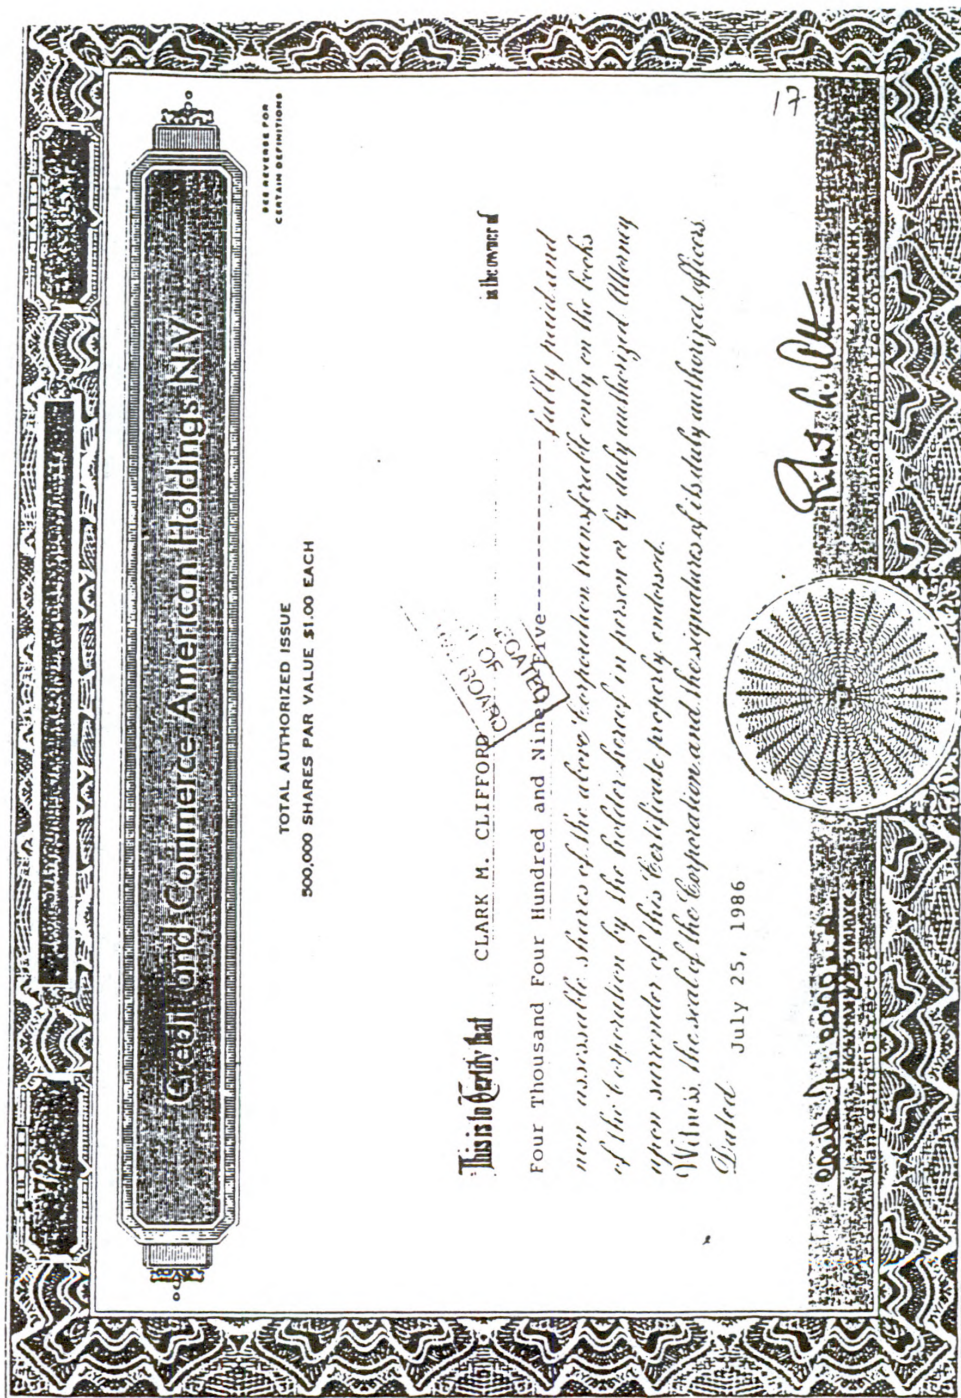 NUMBER
72
SHARES
4,495
Credit and Commerce American Holdings N.V.
SEE REVERSE FOR
CERTAIN DEFINITIONS
TOTAL AUTHORIZED ISSUE
500,000 SHARES PAR VALUE $1.00 EACH
This is to Certify that CLARK M. CLIFFORD is the owner of
Four Thousand Four Hundred and Ninety Five---------------- fully paid and
non assessable shares of the above Corporation transferable only on the books
of the Corporation by the holder hereof in person or by duly authorized Attorney
upon surrender of this Certificate properly endorsed.
Witness, the seal of the Corporation and the signatures of its duly authorized officers.
Dated July 25, 1986
17
Managing Director
Managing Director